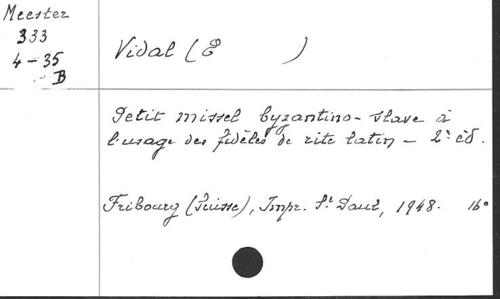 Meester
333
4-35
B
Vidal (E )
Petit missel byzantino-slave à
l'usage des fidèles de rite latin - 2e éd.
Fribourg (Suisse), Impr. St Paul, 1948. 16°